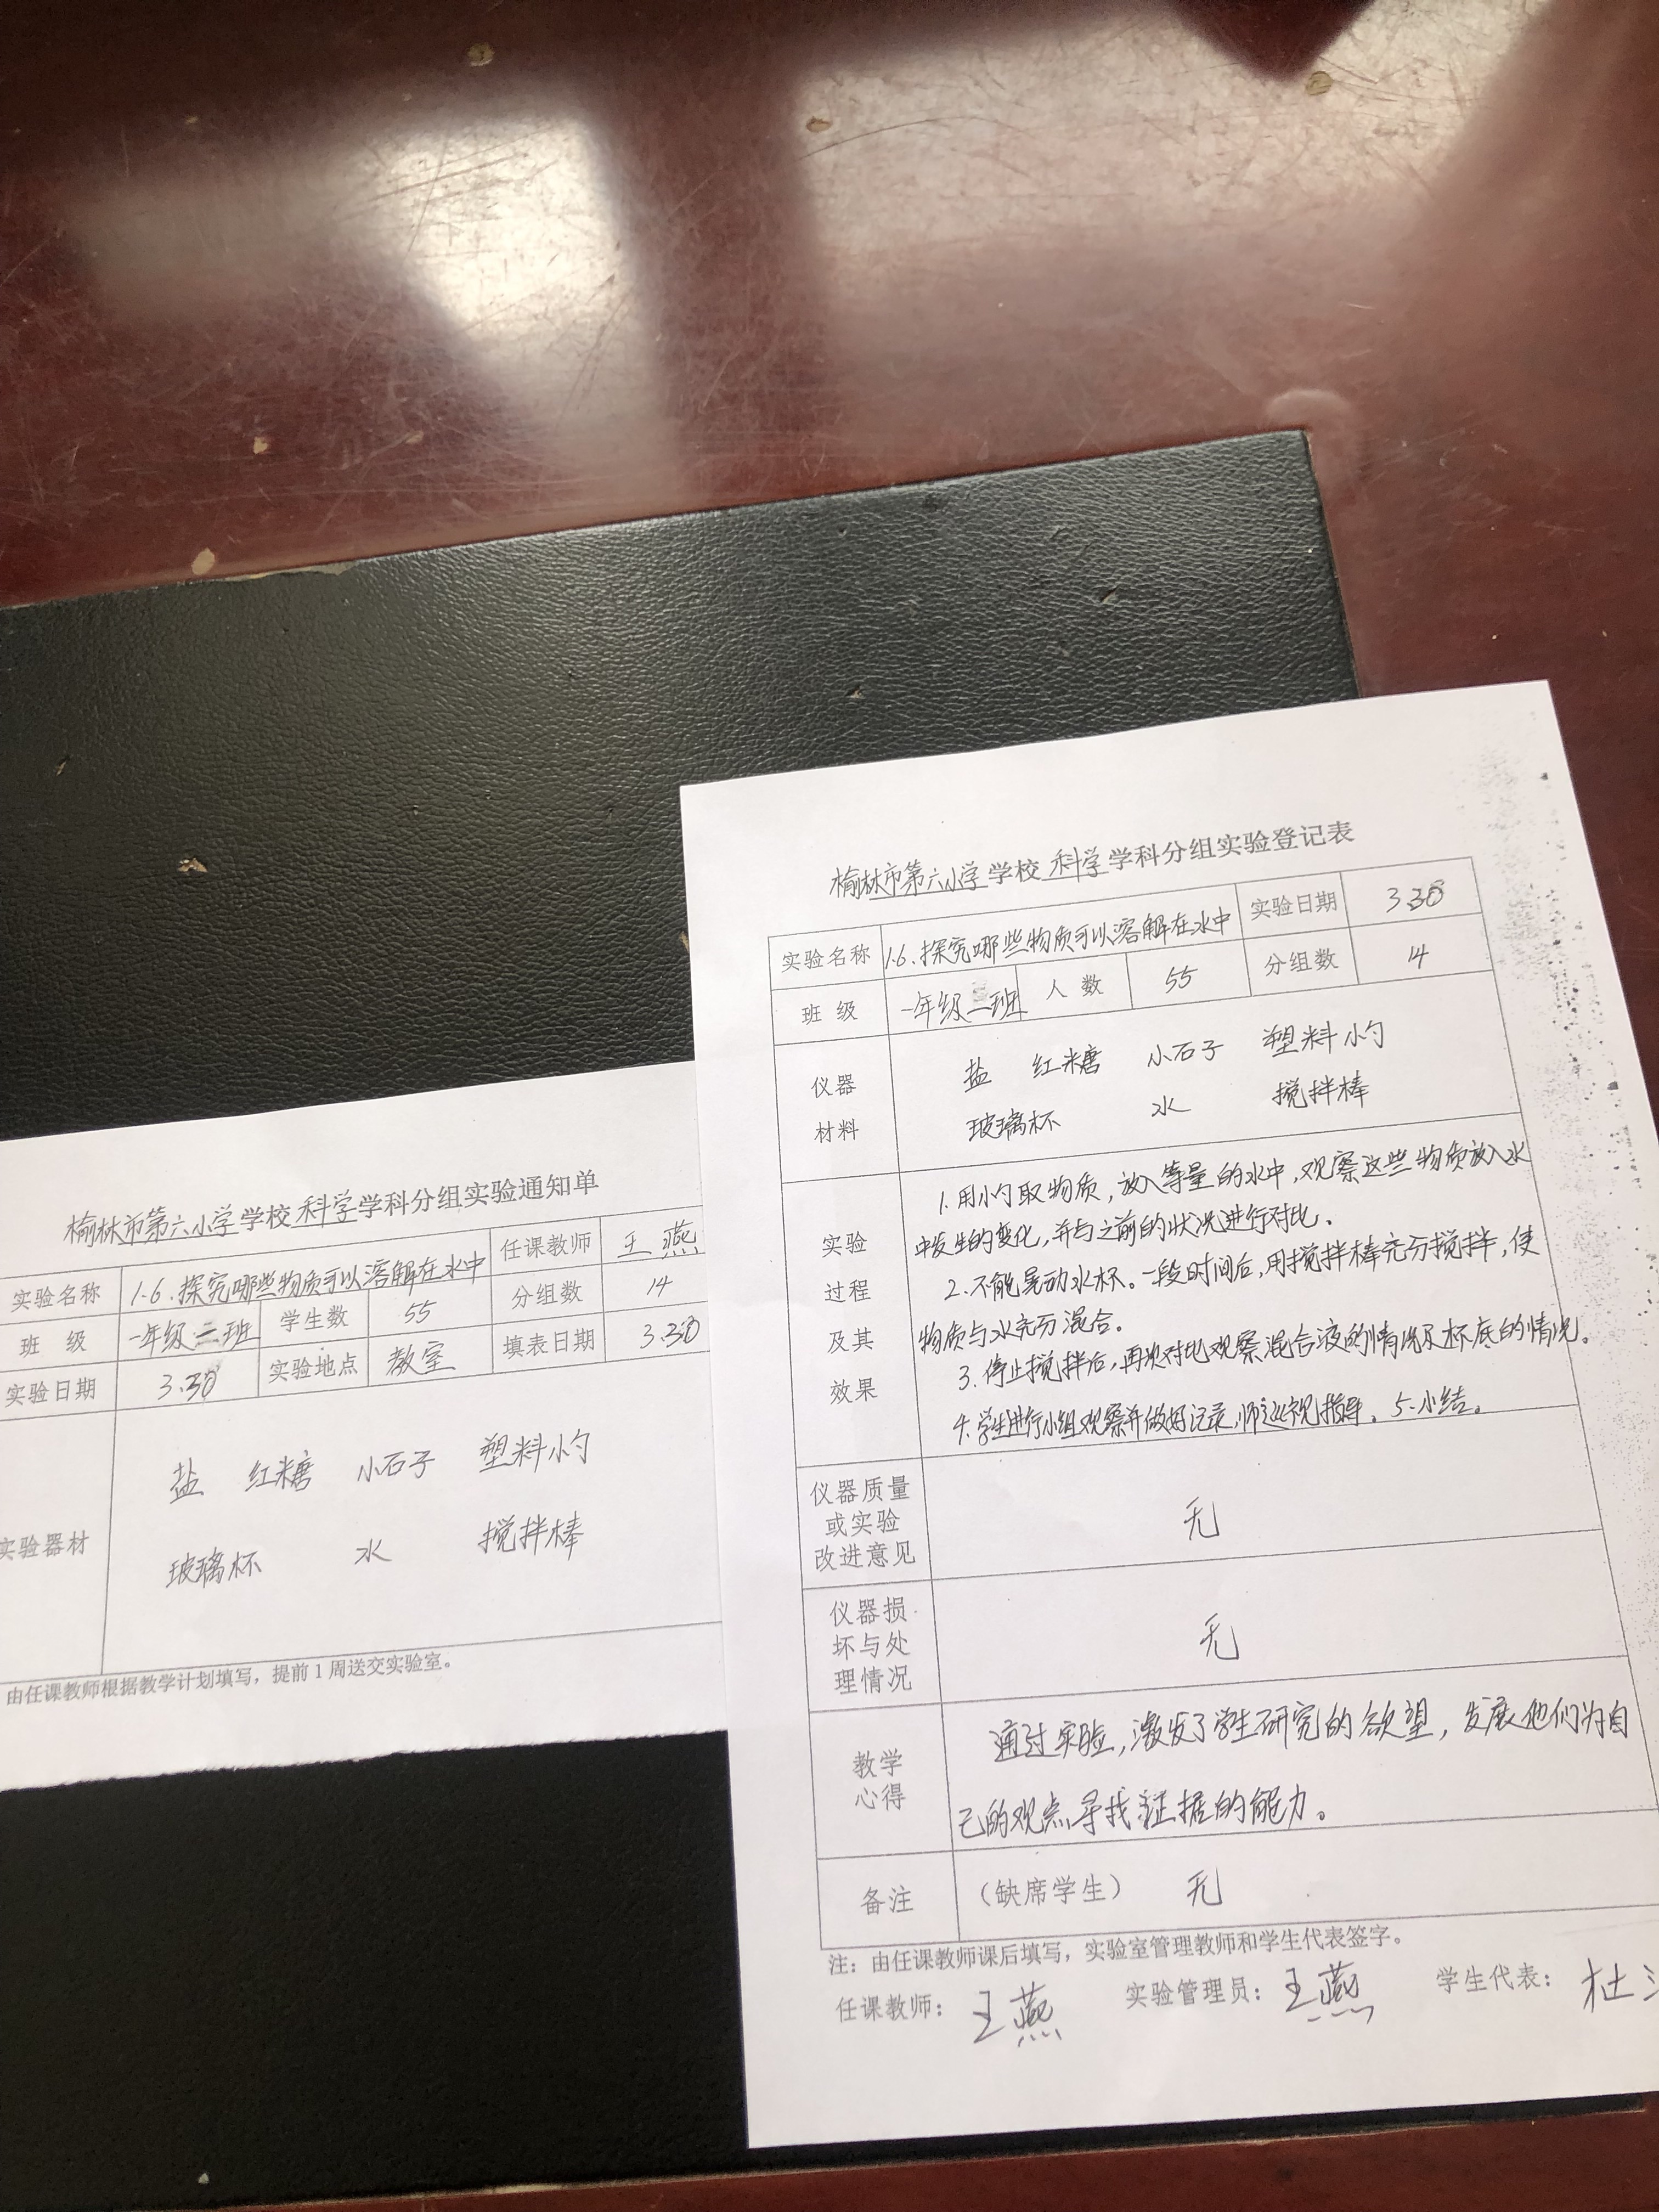 榆林市第六小学学校科学学科分组实验通知单
实验名称 1.6.探究哪些物质可以溶解在水中 任课教师 王燕
班 级 一年级二班 学生数 55 分组数 14
实验日期 3.30 实验地点 教室 填表日期 3.30
实验器材
盐 红糖 小石子 塑料小勺
玻璃杯 水 搅拌棒
由任课教师根据教学计划填写，提前1周送交实验室。
榆林市第六小学学校科学学科分组实验登记表
实验名称 1.6.探究哪些物质可以溶解在水中 实验日期 3.30
班 级 一年级二班 人 数 55 分组数 14
仪器
材料
盐 红糖 小石子 塑料小勺
玻璃杯 水 搅拌棒
实验
过程
及其
效果
1.用小勺取物质，放入等量的水中，观察这些物质放入水
中发生的变化，并与之前的状况进行对比。
2.不能晃动水杯。一段时间后，用搅拌棒充分搅拌，使
物质与水充分混合。
3.停止搅拌后，再次对比观察混合液的情况及杯底的情况。
4.学生进行小组观察并做好记录，师巡视指导。5.小结。
仪器质量
或实验
改进意见
无
仪器损
坏与处
理情况
无
教学
心得
通过实验，激发了学生研究的欲望，发展他们为自
己的观点寻找证据的能力。
备注 （缺席学生） 无
注：由任课教师课后填写，实验室管理教师和学生代表签字。
任课教师：王燕 实验管理员：王燕 学生代表：杜